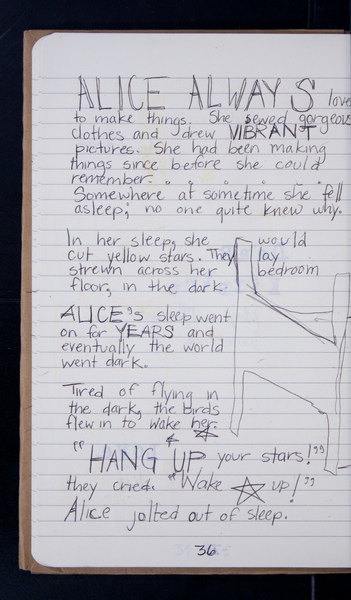 ALICE ALWAYS love
to make things. She sewed gorgeous
clothes and drew VIBRANT
pictures. She had been making
things since before she could
remember. . . . . . .
Somewhere at sometime she fell
asleep; no one quite knew why.
In her sleep, she would
cut yellow stars. They lay
strewn across her bedroom
floor, in the dark.
ALICE's sleep went
on for YEARS and
eventually the world
went dark.
Tired of flying in
the dark, the birds
flew in to wake her.
"HANG UP your stars!"
they cried. "Wake up!"
Alice jolted out of sleep.
36